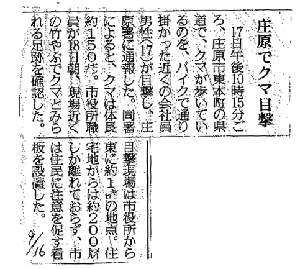 庄原でクマ目撃
17日午後10時15分ご
ろ、庄原市東本町の県
道で、クマが歩いてい
るのを、バイクで通り
掛かった近くの会社員
男性(17)が目撃し、庄
原署に通報した。同署
によると、クマは体長
約150㌢。市役所職
員が18日朝、現場近く
の竹やぶでクマとみら
れる足跡を確認した。
目撃現場は市役所から
東に約1㌔の地点。住
宅地からは約200㍍
しか離れておらず、市
は住民に注意を促す看
板を設置した。
9/16